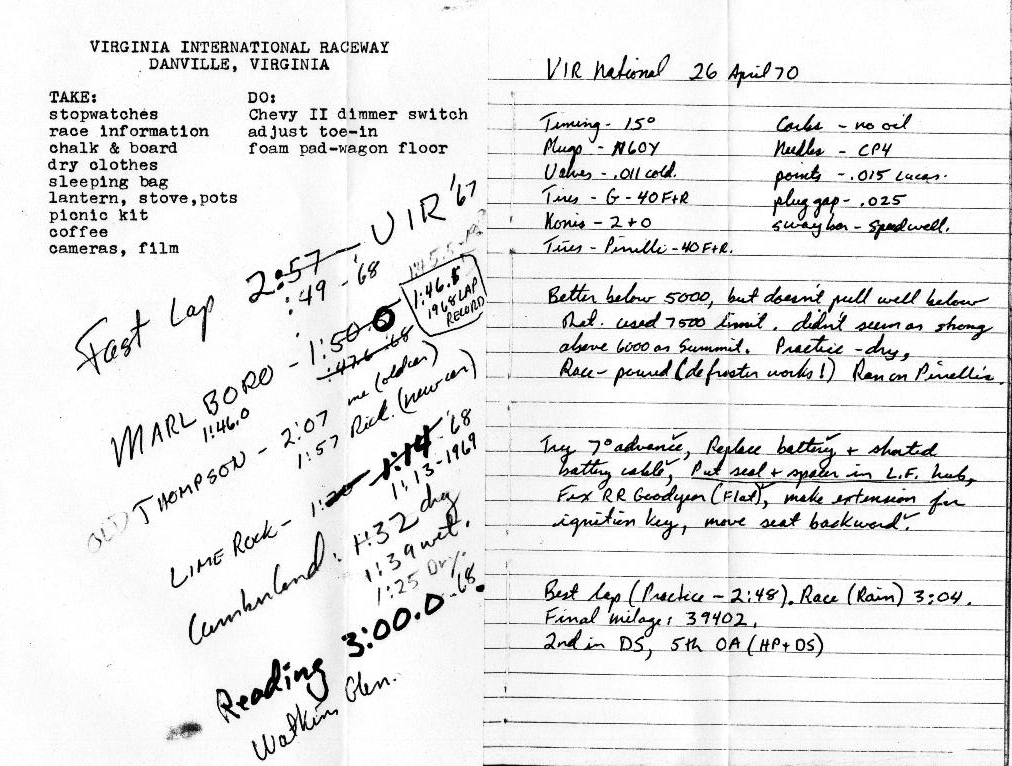 VIRGINIA INTERNATIONAL RACEWAY
DANVILLE, VIRGINIA
TAKE:
stopwatches
race information
chalk & board
dry clothes
sleeping bag
lantern, stove,pots
picnic kit
coffee
cameras, film
DO:
Chevy II dimmer switch
adjust toe-in
foam pad-wagon floor
Fast Lap 2:57 - VIR '67
:49 - '68
1:46.5
1968 LAP
RECORD
MARLBORO - 1:50.0
1:47.6 - '68
1:46.0
OLD THOMPSON - 2:07 me (oldcar)
1:57 Rick (new car)
LIME ROCK - 1:20 1:14 - '68
1:13 - 1969
Cumberland: 1:32 dry
1:39 wet.
1:25 Dry
Reading 3:00.0 - '68.
Watkins Glen.
VIR National 26 April 70
Timing - 15°
Plugs - N60Y
Valves - .011 cold.
Tires - G - 40 F+R
Konis - 2 + 0
Tires - Pirelli - 40 F+R.
Carbs - no oil
Needles - CP4
points - .015 Lucas.
plug gap - .025
swaybar - Speedwell.
Better below 5000, but doesn't pull well below
that. used 7500 limit. didn't seem as strong
above 6000 as Summit. Practice - dry,
Race - poured (defroster works!) Ran on Pirellis.
Try 7° advance, Replace battery + shorted
battery cable, Put seal + spacer in L.F. hub,
Fix RR Goodyear (Flat), make extension for
ignition key, move seat backward.
Best lap (Practice - 2:48). Race (Rain) 3:04.
Final milage: 39402.
2nd in DS, 5th OA (HP + DS)